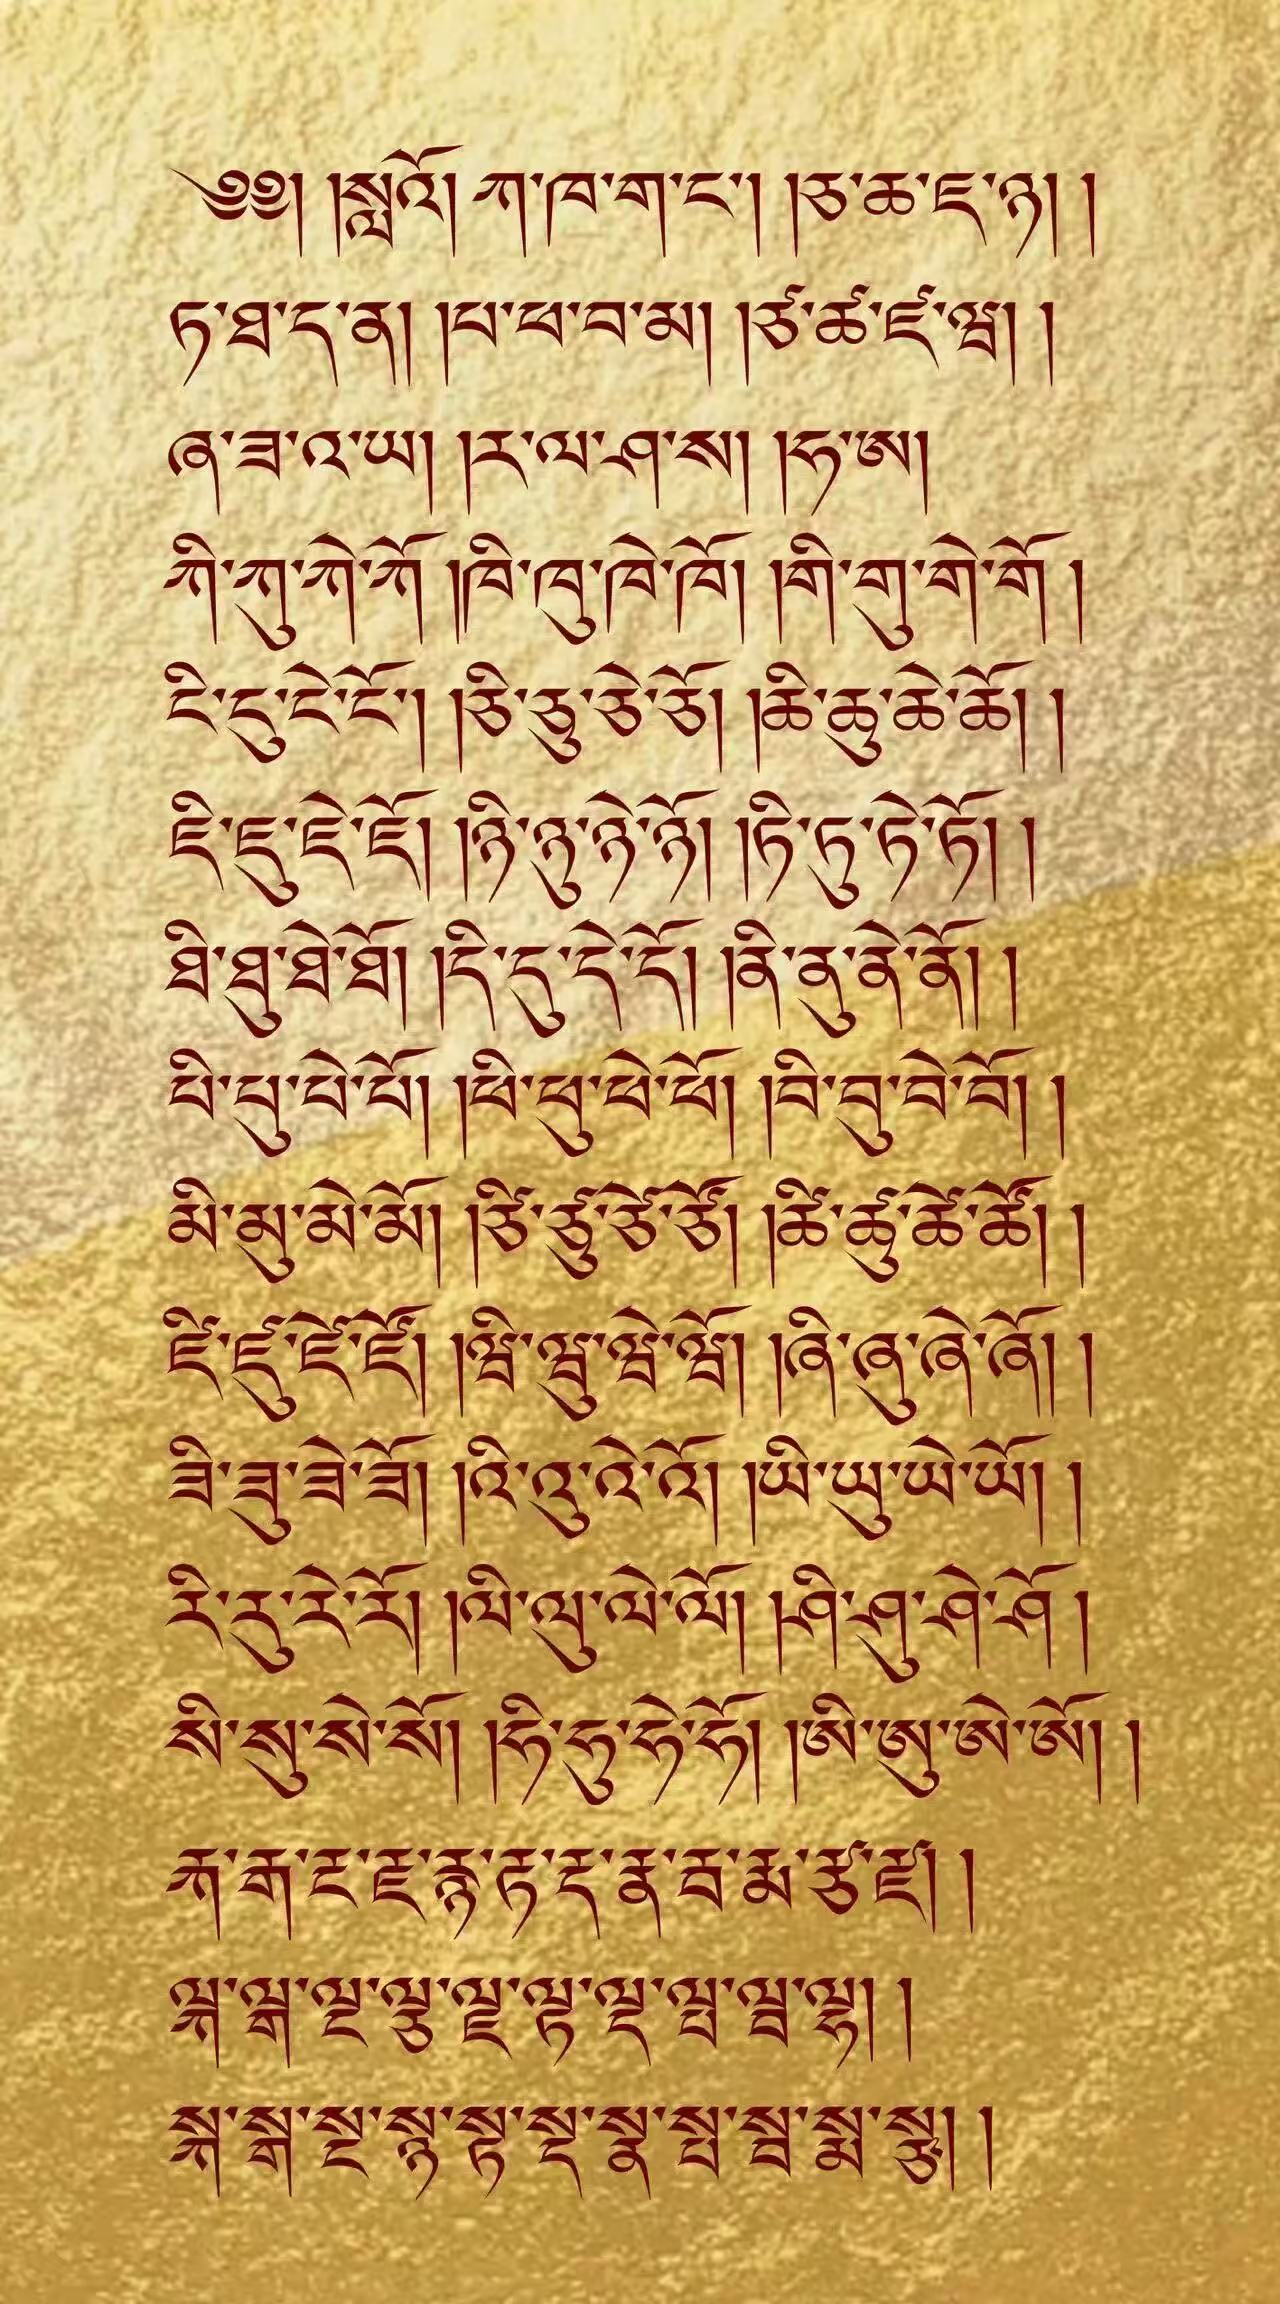 ༄༅། ། ཀ་ཁ་ག་ང་། །ཅ་ཆ་ཇ་ཉ། །
ཏ་ཐ་ད་ན། །པ་ཕ་བ་མ། །ཙ་ཚ་ཛ་ཝ། །
ཞ་ཟ་འ་ཡ། །ར་ལ་ཤ་ས། །ཧ་ཨ།
ཀི་ཀུ་ཀེ་ཀོ །ཁི་ཁུ་ཁེ་ཁོ། །གི་གུ་གེ་གོ །
ངི་ངུ་ངེ་ངོ་། །ཅི་ཅུ་ཅེ་ཅོ། །ཆི་ཆུ་ཆེ་ཆོ། །
ཇི་ཇུ་ཇེ་ཇོ། །ཉི་ཉུ་ཉེ་ཉོ། །ཏི་ཏུ་ཏེ་ཏོ། །
ཐི་ཐུ་ཐེ་ཐོ། །དི་དུ་དེ་དོ། །ནི་ནུ་ནེ་ནོ། །
པི་པུ་པེ་པོ། །ཕི་ཕུ་ཕེ་ཕོ། །བི་བུ་བེ་བོ། །
མི་མུ་མེ་མོ། །ཙི་ཙུ་ཙེ་ཙོ། །ཚི་ཚུ་ཚེ་ཚོ། །
ཛི་ཛུ་ཛེ་ཛོ། །ཝི་ཝུ་ཝེ་ཝོ། །ཞི་ཞུ་ཞེ་ཞོ། །
ཟི་ཟུ་ཟེ་ཟོ། །འི་འུ་འེ་འོ། །ཡི་ཡུ་ཡེ་ཡོ། །
རི་རུ་རེ་རོ། །ལི་ལུ་ལེ་ལོ། །ཤི་ཤུ་ཤེ་ཤོ །
སི་སུ་སེ་སོ། །ཧི་ཧུ་ཧེ་ཧོ། །ཨི་ཨུ་ཨེ་ཨོ། །
རྐ་རྒ་རྔ་རྗ་རྙ་རྟ་རྡ་རྣ་རྦ་རྨ་རྩ་རྫ། །
ལྐ་ལྒ་ལྔ་ལྕ་ལྗ་ལྟ་ལྡ་ལྤ་ལྦ་ལྷ། །
སྐ་སྒ་སྔ་སྙ་སྟ་སྡ་སྣ་སྤ་སྦ་སྨ་སྩ། །